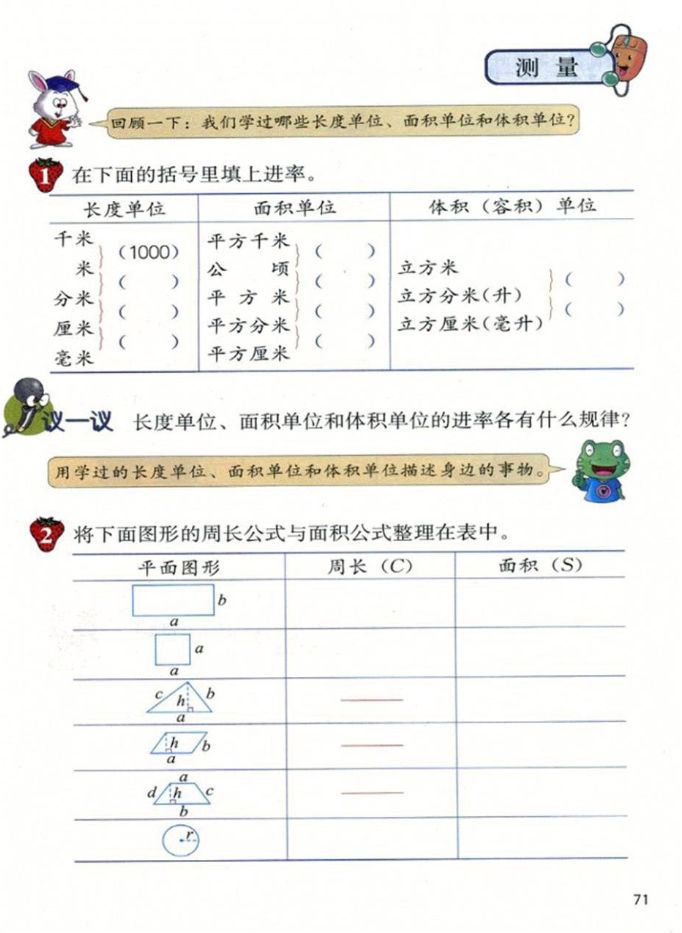 测 量
回顾一下：我们学过哪些长度单位、面积单位和体积单位？
1 在下面的括号里填上进率。
长度单位 面积单位 体积（容积）单位
千米
米
分米
厘米
毫米
（1000）
（ ）
（ ）
（ ）
平方千米
公 顷
平 方 米
平方分米
平方厘米
（ ）
（ ）
（ ）
（ ）
立方米
立方分米（升）
立方厘米（毫升）
（ ）
（ ）
议一议 长度单位、面积单位和体积单位的进率各有什么规律？
用学过的长度单位、面积单位和体积单位描述身边的事物。
2 将下面图形的周长公式与面积公式整理在表中。
平面图形 周长（C） 面积（S）
b
a
a
a
c h b
a
h b
a
a
d h c
b
r
71